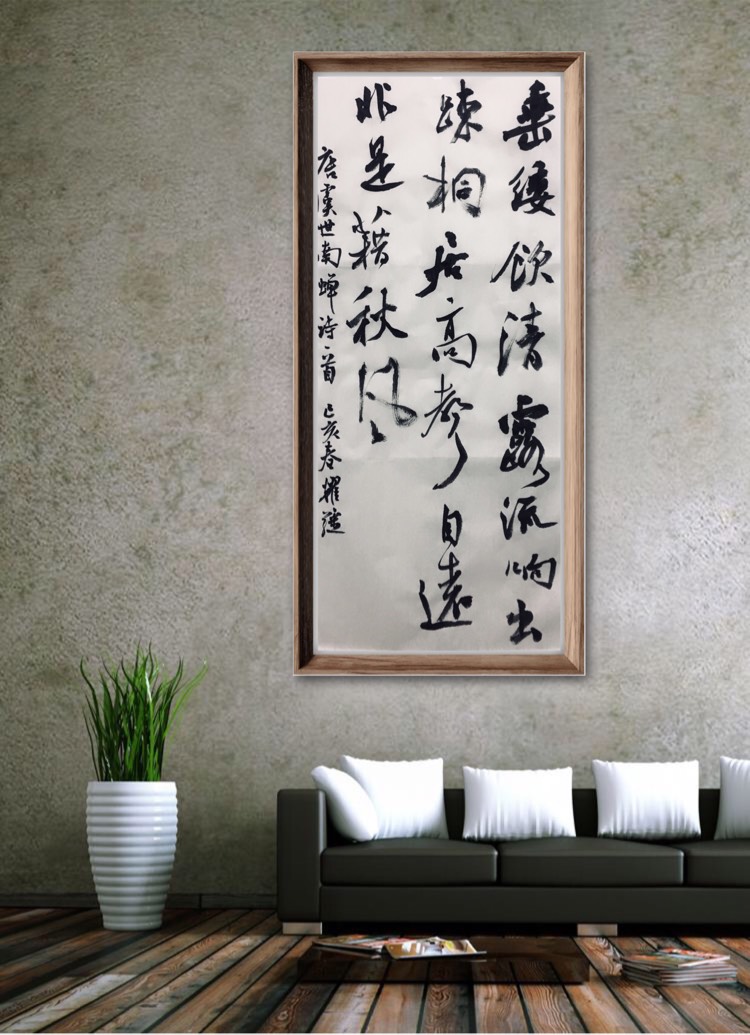 垂緌飲清露流响出
踈桐居高聲自遠
非是籍秋风
唐虞世南蝉诗一首 己亥春耀